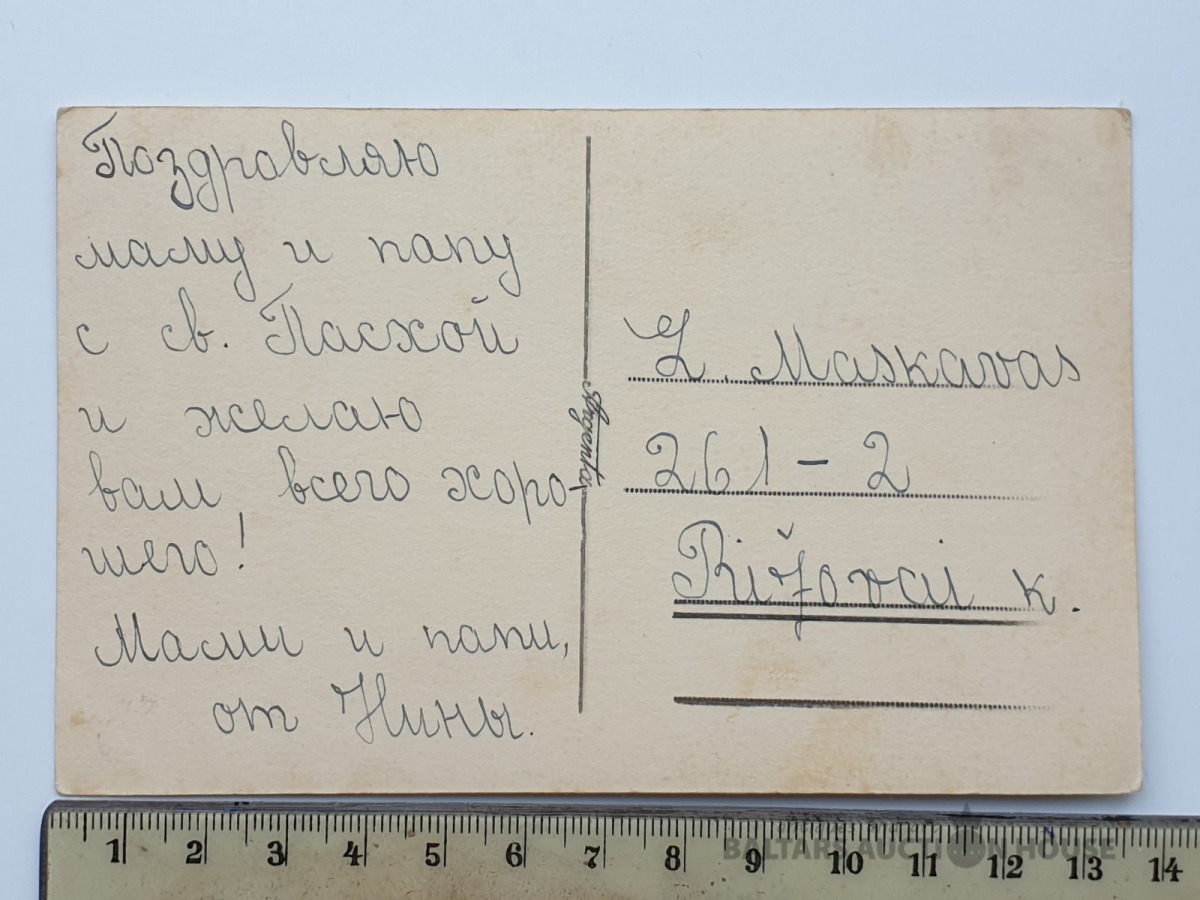 Поздравляю
маму и папу
с св. Пасхой
и желаю
вам всего хоро-
шего!
Мами и папи,
от Нины.
L. Maskavas
261 - 2
Rižovai k.
1 2 3 4 5 6 7 8 9 10 11 12 13 14
BALTARS AUCTION HOUSE